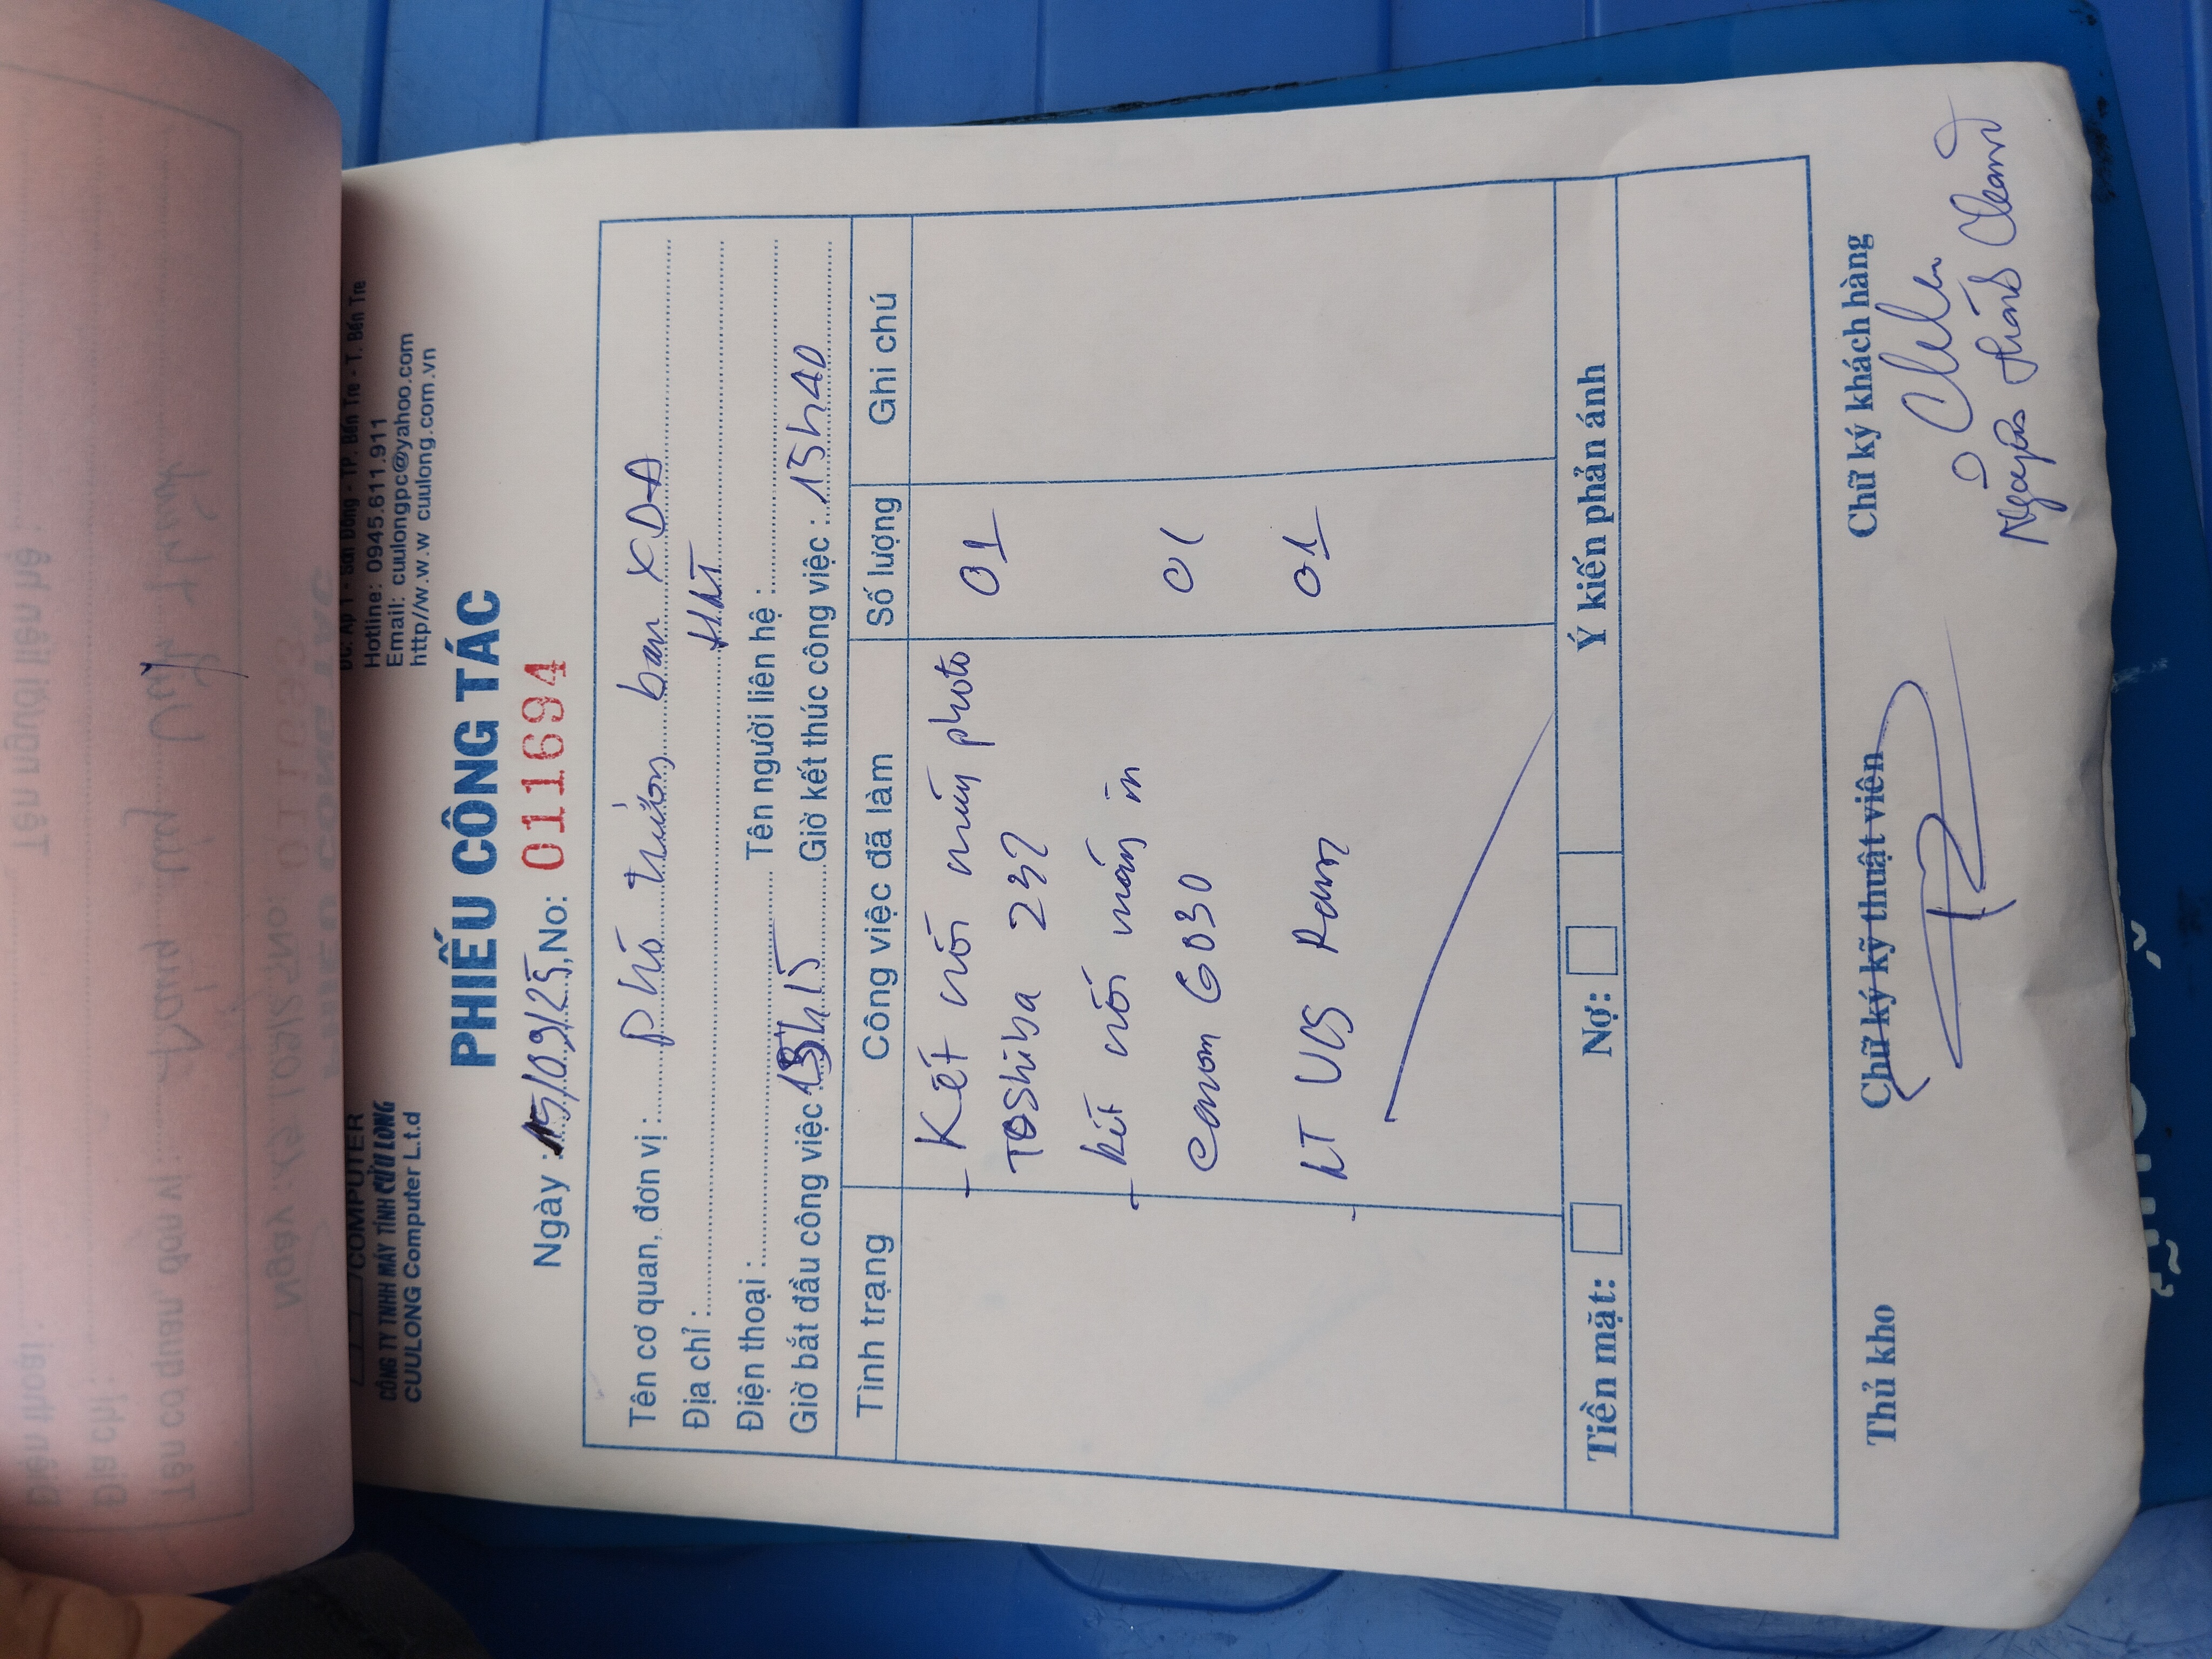 COMPUTER
CÔNG TY TNHH MÁY TÍNH CỬU LONG
CUULONG Computer L.t.d
ĐC: Ấp 1 - Sơn Đông - TP. Bến Tre - T. Bến Tre
Hotline: 0945.611.911
Email: cuulongpc@yahoo.com
http//w.w.w cuulong.com.vn
PHIẾU CÔNG TÁC
Ngày : 15/09/25, No: 011694
Tên cơ quan, đơn vị : phó trưởng ban XDĐ
Địa chỉ :
Điện thoại : Tên người liên hệ :
Giờ bắt đầu công việc 15h15 Giờ kết thúc công việc : 15h40
Tình trạng Công việc đã làm Số lượng Ghi chú
- Kết nối máy photo 01
Toshiba 232
- kết nối máy in 01
Canon 6030
- LT Ram 01
Tiền mặt: Nợ: Ý kiến phản ánh
Thủ kho Chữ ký kỹ thuật viên Chữ ký khách hàng
Nguyễn